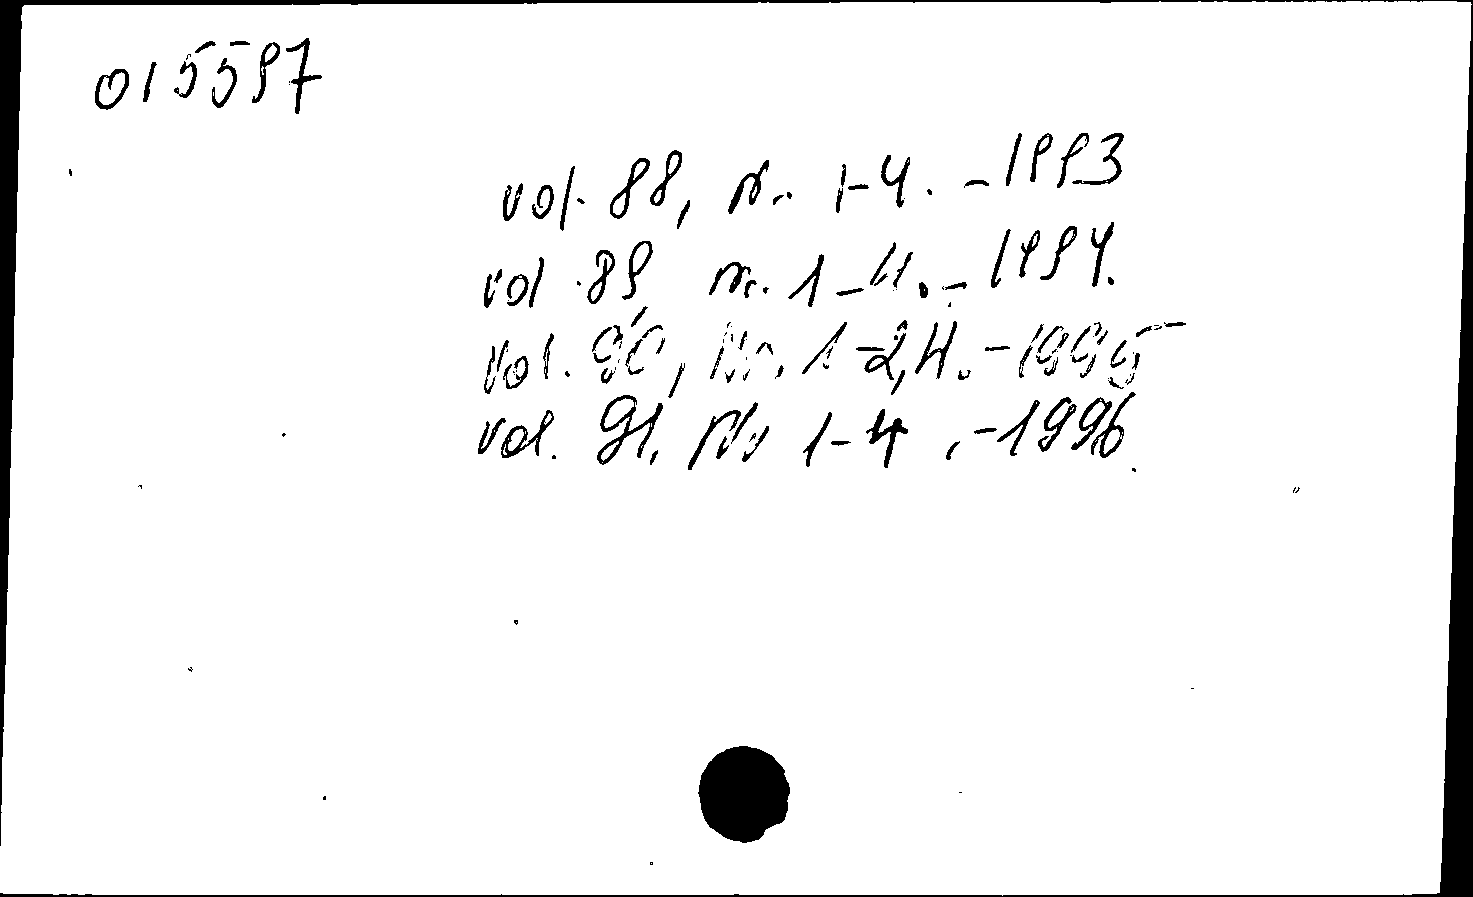 015597
vol. 88, nr. 1-4. - 1993
vol. 89, nr. 1-4. - 1994.
vol. 90, Nr. 1-2,4. - 1995
vol. 91, Nr 1-4. - 1996.